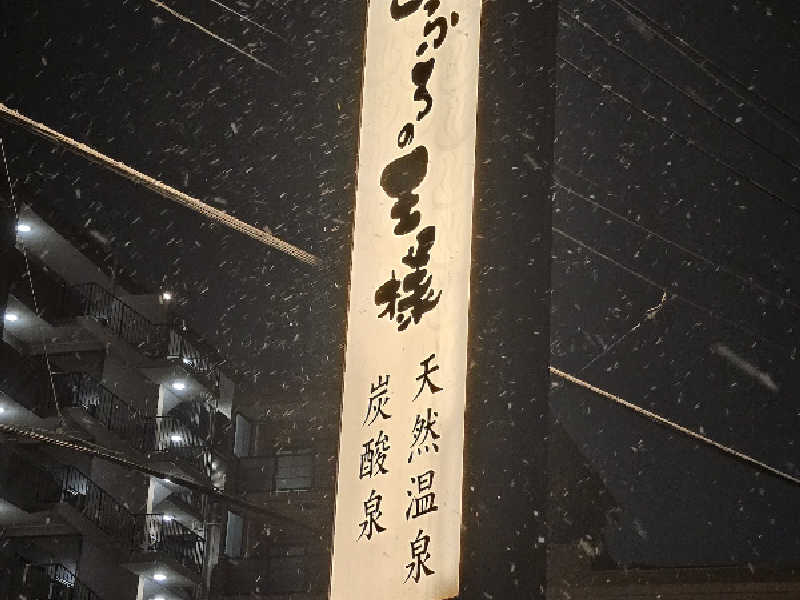 ふろの王様
天然温泉
炭酸泉